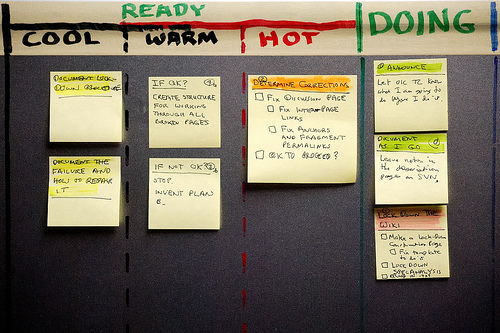 READY
COOL WARM HOT DOING
DOCUMENT LOCK-
DOWN PROCEDURE
DOCUMENT THE
FAILURE AND
HOW TO REPAIR
IT
IF OK?
CREATE STRUCTURE
FOR WORKING
THROUGH ALL
BROKEN PAGES
IF NOT OK?
STOP.
INVENT PLAN
B.
DETERMINE CORRECTIONS
FIX DISCUSSION PAGE
FIX INTER-PAGE
LINKS
FIX ANCHORS
AND FRAGMENT
PERMALINKS
OK TO PROCEED?
ANNOUNCE
Let OTC TZ know
what I am going to
do before I do it.
DOCUMENT
AS I GO
Leave notes in
the observation
page on SVN.
LOCK DOWN THE
WIKI
Make a Lock-Down
Confirmation Page
Fix template
to do it
LOCK DOWN
SPECANALYSIS